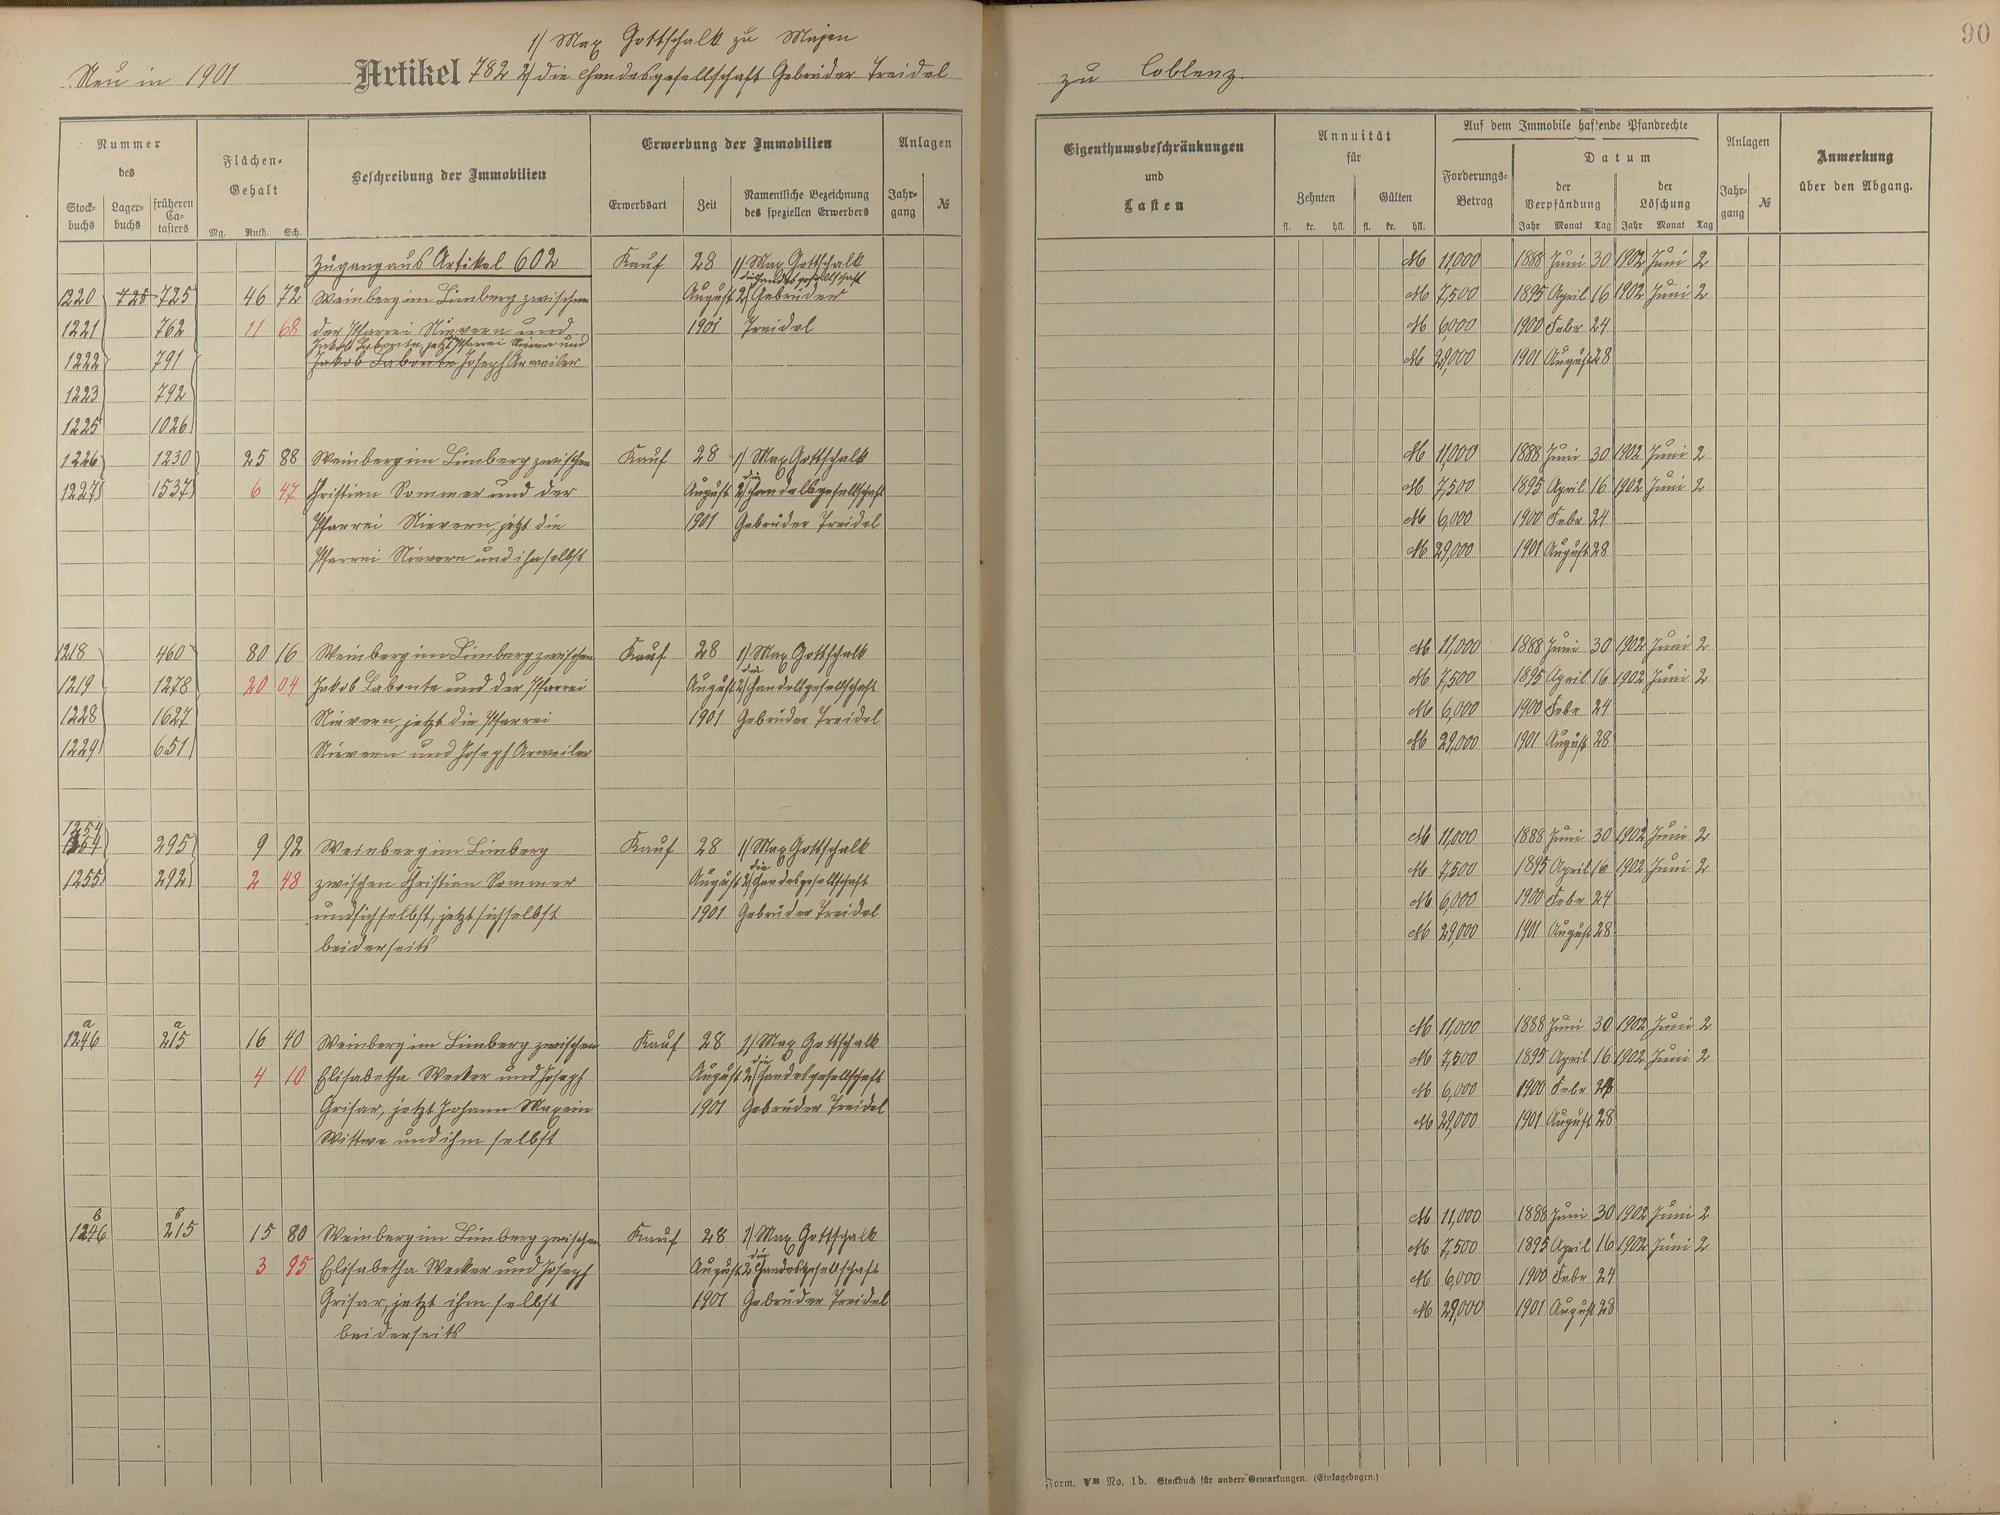 90
1) Max Gottschalk zu Majen
Neu in 1901 Artikel 782 2) die Handelsgesellschaft Gebrüder Treidel zu Coblenz.
Nummer des
Stockbuchs Lagerbuchs früheren Catasters
Flächen-Gehalt
Mg. Ruth. Sch.
Beschreibung der Immobilien
Erwerbung der Immobilien
Erwerbsart Zeit Namentliche Bezeichnung des speziellen Erwerbers
Anlagen
Jahrgang №
Eigenthumsbeschränkungen und Lasten
Annuität für
Zehnten Gülten
fl. kr. hll. fl. kr. hll.
Auf dem Immobile haftende Pfandrechte
Forderungs-Betrag
Datum
der Verpfändung der Löschung
Jahr Monat Tag Jahr Monat Tag
Anlagen
Jahrgang №
Anmerkung über den Abgang.
Zugang aus Artikel 602 Kauf 28 1) Max Gottschalk M 11,000 1888 Juni 30 1902 Juni 2
die Handelsgesellschaft
1220 725 725 46 72 Weinberg im Limberg zwischen August 2) Gebrüder M 7,500 1895 April 16 1902 Juni 2
1221 762 11 68 der Pfarrei Nievern und 1901 Treidel M 6000 1900 Febr 24
Jakob Labonte, jetzt Pfarrei Nievern und
1222 791 Jakob Labonte Joseph Arweiler M 29,000 1901 August 28
1223 792
1225 1026
1226 1230 25 88 Weinberg im Limberg zwischen Kauf 28 1) Max Gottschalk M 11,000 1888 Juni 30 1902 Juni 2
die
1227 1537 6 47 Christian Sommer und der August 2) Handelsgesellschaft M 7,500 1895 April 16 1902 Juni 2
Pfarrei Nievern, jetzt die 1901 Gebrüder Treidel M 6,000 1900 Febr 24
Pfarrei Nievern und ihm selbst M 29,000 1901 August 28
1218 460 80 16 Weinberg im Limberg zwischen Kauf 28 1) Max Gottschalk M 11,000 1888 Juni 30 1902 Juni 2
die
1219 1278 20 04 Jakob Labonte und der Pfarrei August 2) Handelsgesellschaft M 7,500 1895 April 16 1902 Juni 2
1228 1627 Nievern, jetzt die Pfarrei 1901 Gebrüder Treidel M 6,000 1900 Febr 24
1229 651 Nievern und Joseph Arweiler M 29,000 1901 August 28
1254
295 9 92 Weinberg im Limberg Kauf 28 1) Max Gottschalk M 11,000 1888 Juni 30 1902 Juni 2
die
1255 292 2 48 zwischen Christian Sommer August 2) Handesgesellschaft M 7,500 1895 April 16 1902 Juni 2
und sich selbst, jetzt sich selbst 1901 Gebrüder Treidel M 6,000 1900 Febr 24
beiderseits M 29,000 1901 August 28
a a
1246 215 16 40 Weinberg im Limberg zwischen Kauf 28 1) Max Gottschalk M 11,000 1888 Juni 30 1902 Juni 2
die
4 10 Elisabetha Wecker und Joseph August 2) Handesgesellschaft M 7,500 1895 April 16 1902 Juni 2
Grisar, jetzt Johann Maxein 1901 Gebrüder Treidel M 6,000 1900 Febr 24
Wittwe und ihm selbst M 29,000 1901 August 28
b b
1246 215 15 80 Weinberg im Limberg zwischen Kauf 28 1) Max Gottschalk M 11,000 1888 Juni 30 1902 Juni 2
die
3 95 Elisabetha Wecker und Joseph August 2) Handesgesellschaft M 7,500 1895 April 16 1902 Juni 2
Grisar, jetzt ihm selbst 1901 Gebrüder Treidel M 6,000 1900 Febr 24
beiderseits M 29,000 1901 August 28
Form. VB No. 1b. Stockbuch für andere Gemarkungen. (Einlagebogen.)